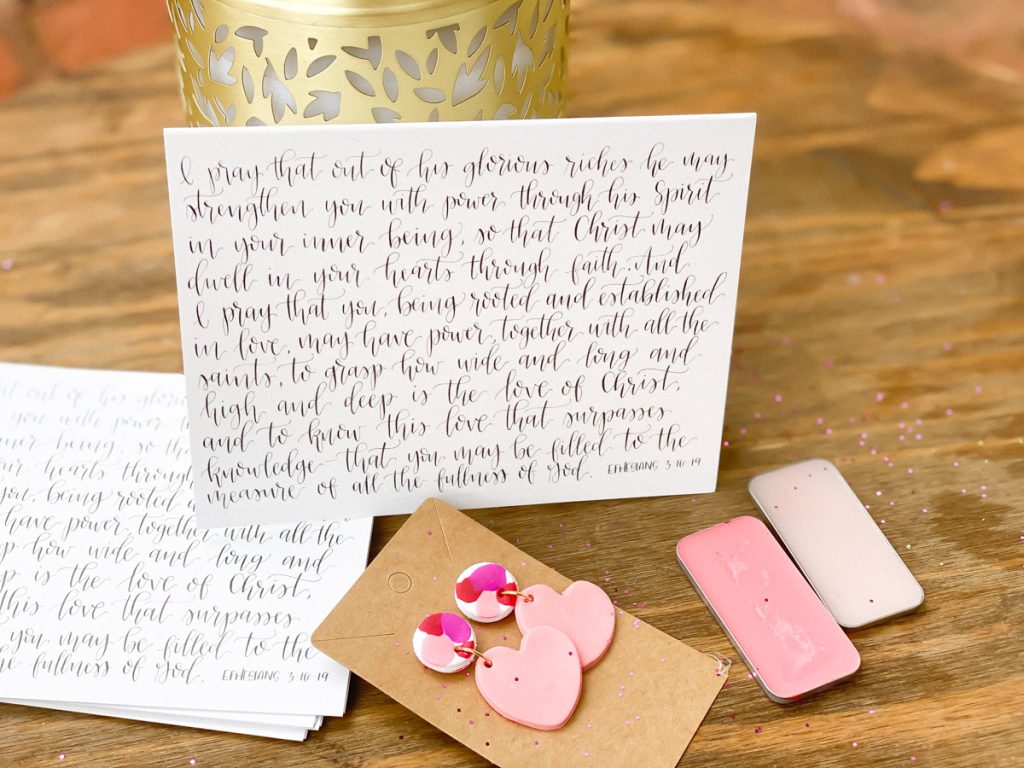 I pray that out of his glorious riches he may
strengthen you with power through his Spirit
in your inner being, so that Christ may
dwell in your hearts through faith. And
I pray that you, being rooted and established
in love, may have power, together with all the
saints, to grasp how wide and long and
high and deep is the love of Christ,
and to know this love that surpasses
knowledge - that you may be filled to the
measure of all the fullness of God. EPHESIANS 3:16-19
that out of his glorious
you with power th
ner being, so th
hearts through
you, being rooted
have power, together with all the
sp how wide and long and
p is the love of Christ,
this love that surpasses
you may be filled to the
e fullness of God. EPHESIANS 3:16-19